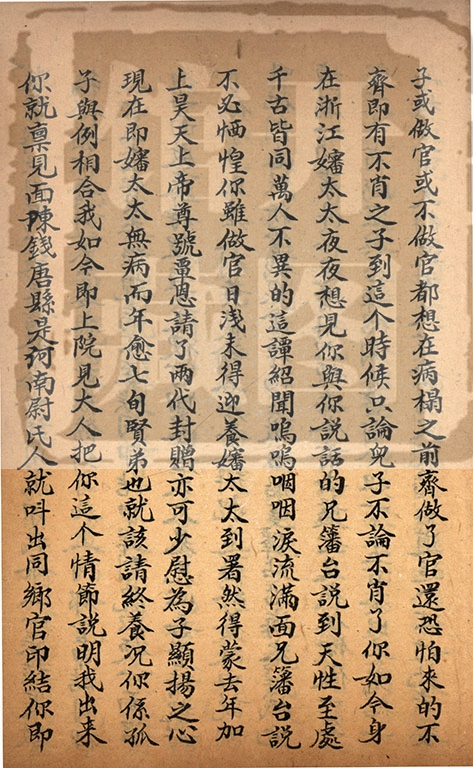 子或做官或不做官都想在病榻之前齊做了官還恐怕來的不
齊即有不肖之子到這个時候只論兒子不論不肖了你如今身
在浙江嬸太太夜夜想見你與你説話的兄籓台説到天性至處
千古皆同萬人不異的這譚紹聞嗚嗚咽咽淚流滿面兄籓台説
不必恓惶你雖做官日浅未得迎養嬸太太到署然得蒙去年加
上昊天上帝尊號覃恩請了兩代封贈亦可少慰為子顯揚之心
現在即嬸太太無病而年愈七旬賢弟也就該請終養况你係孤
子與例相合我如今即上院見大人把你這个情節説明我出来
你就禀見面陳錢唐縣是河南尉氏人就呌出同鄉官印結你即